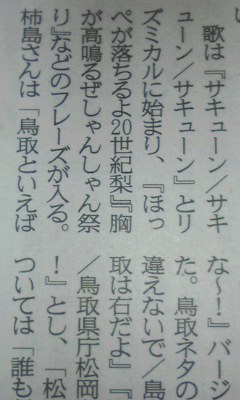 歌は『サキューン／サキ
ューン／サキューン』とリ
ズミカルに始まり、『ほっ
ぺが落ちるよ20世紀梨』『胸
が高鳴るぜしゃんしゃん祭
り』などのフレーズが入る。
柿島さんは「鳥取といえば
な〜！』バージ
た。鳥取ネタの
違えないで／島
取は右だよ』『
／鳥取県庁松岡
！』とし、「松
ついては「誰も